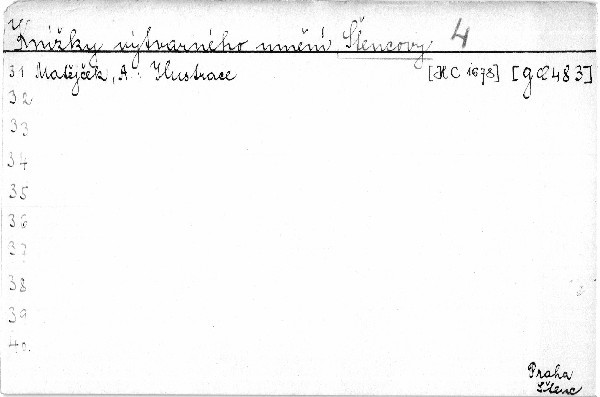 Knížky výtvarného umění Štencovy 4
31 Matějček, A.: Ilustrace [HC 1678] [gd 483]
32
33
34
35
36
37
38
39
40.
Praha
Štenc